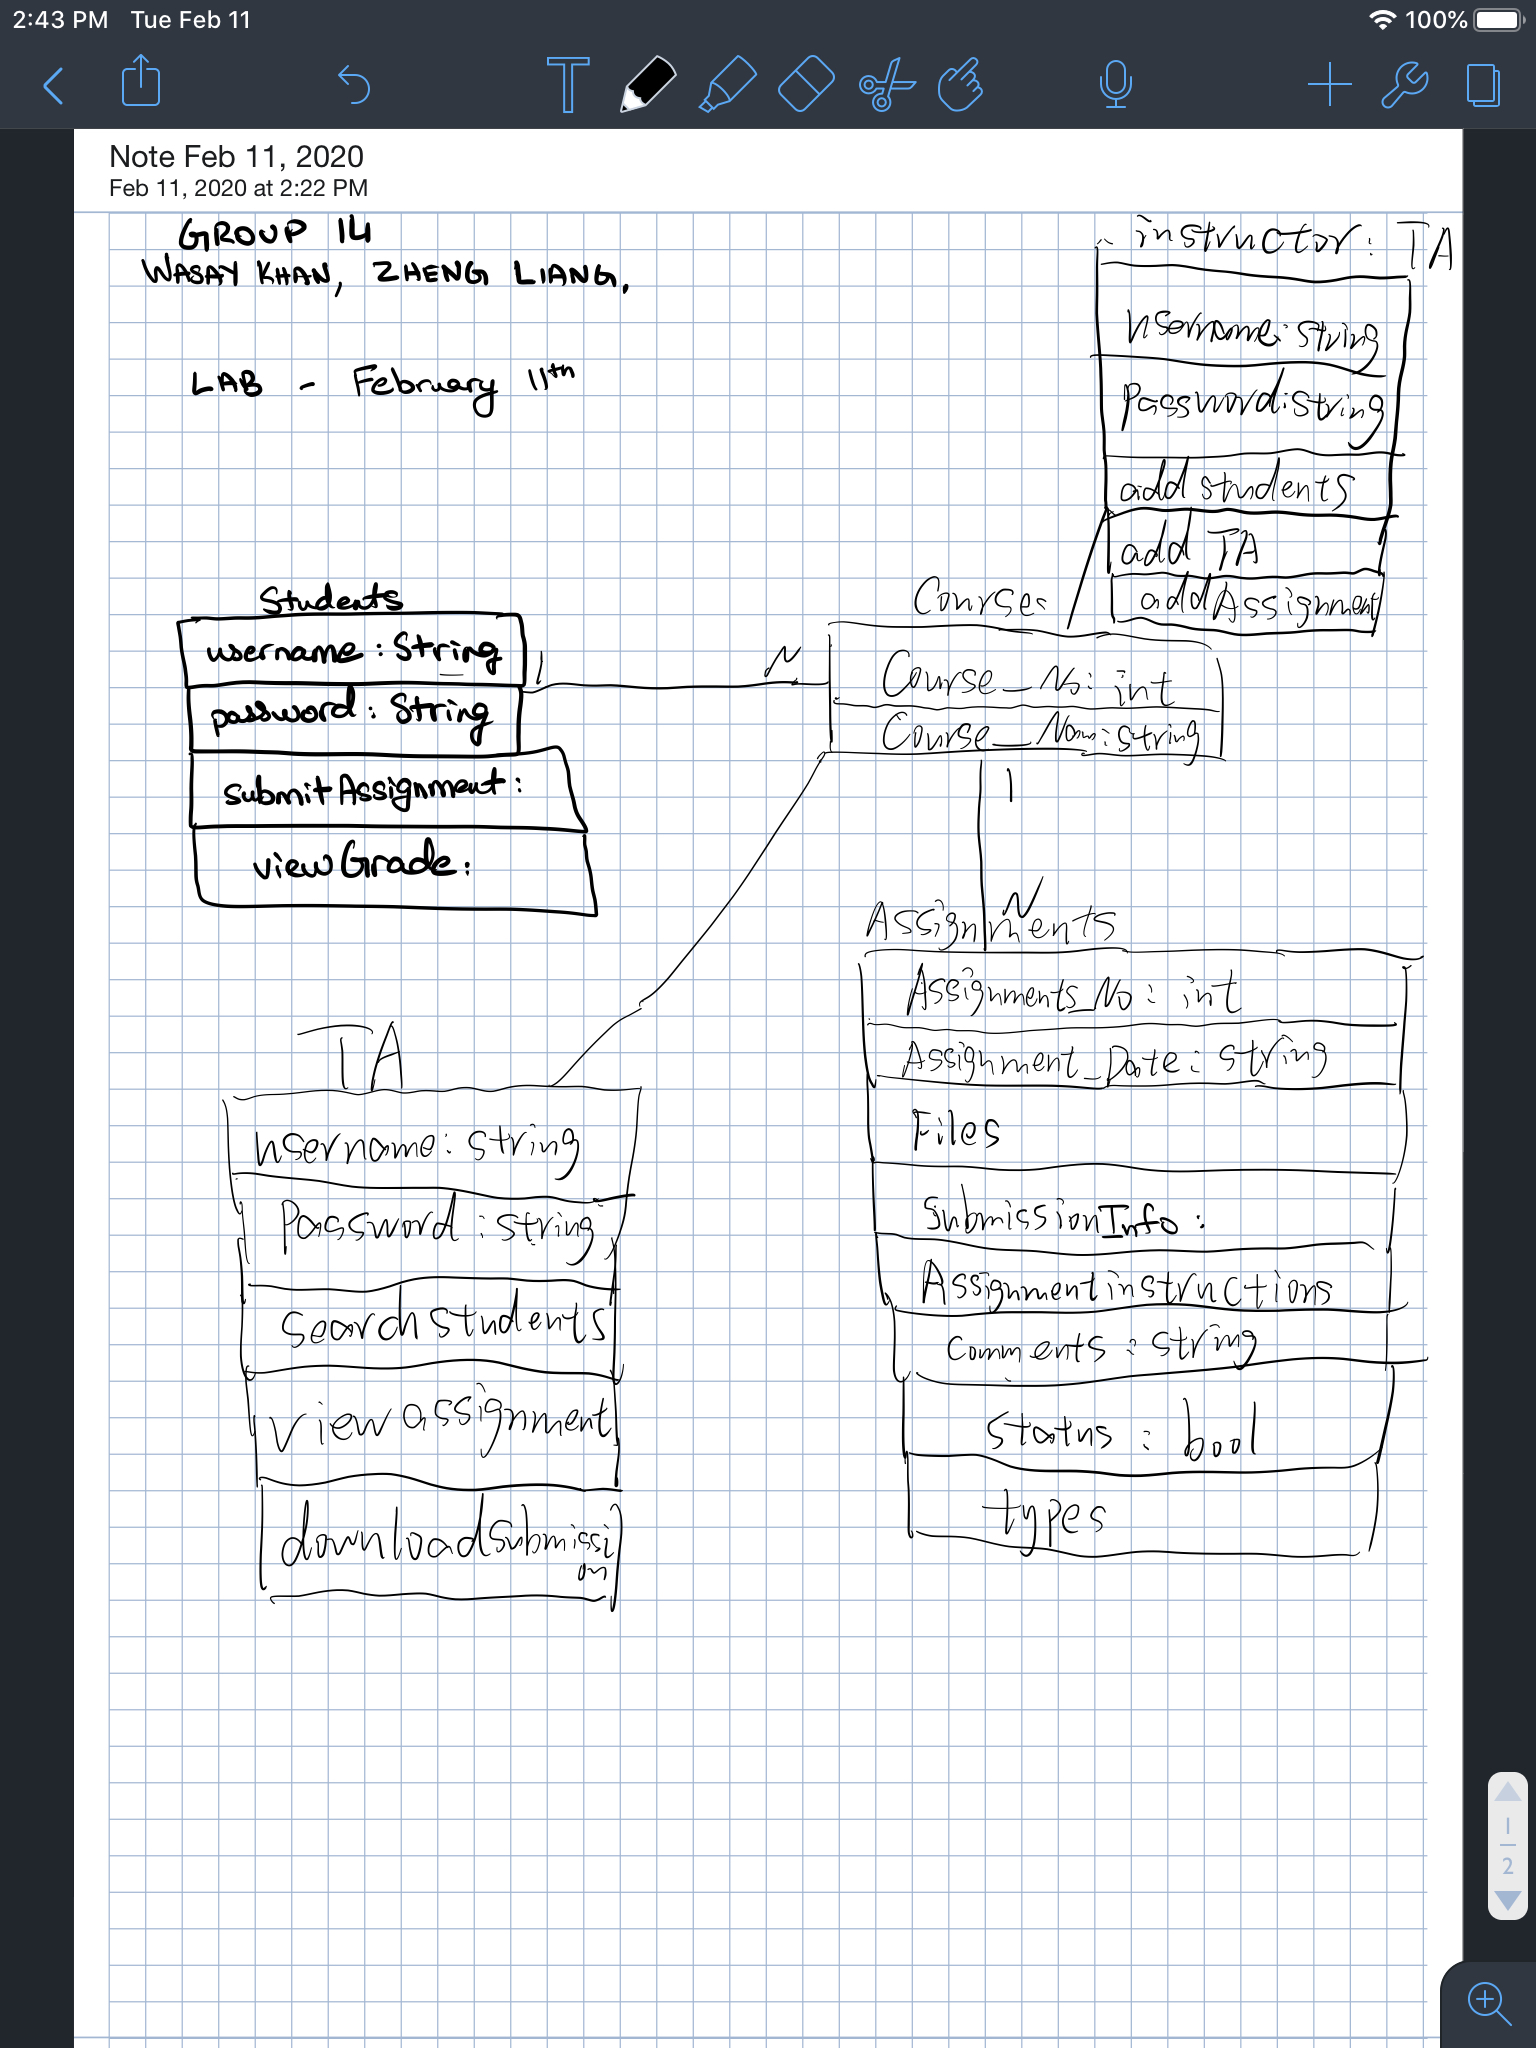 2:43 PM Tue Feb 11
100%
Note Feb 11, 2020
Feb 11, 2020 at 2:22 PM
GROUP 14
WASAY KHAN, ZHENG LIANG.
LAB - February 11th
instructor: TA
username: string
Password: string
add students
add TA
addAssignment
Students
username: String
password: String
submitAssignment:
viewGrade:
1
N
Course:
Course_No: int
Course_Name: string
1
N
Assignments
Assignments_No: int
Assignment_Date: string
Files
SubmissionInfo:
Assignmentinstructions
Comments: string
Status: bool
types
TA
username: string
Password: string
searchstudents
viewassignment
downloadsubmissi
on
1
2